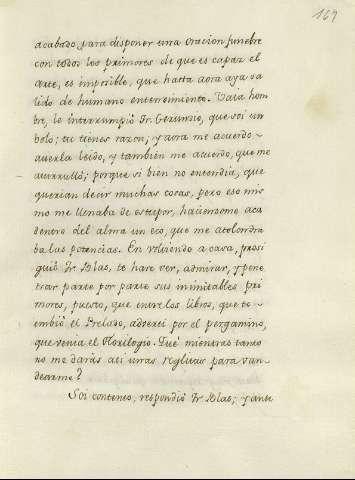 169
acabado, para disponer una oracion funebre
con todos los primores de que es capaz el
arte, es imposible, que hasta aora aya sa
lido de humano entendimiento. Vaia hom
bre, le interrumpió Fr. Gerundio, que soi un
bolo; tu tienes razon, y aora me acuerdo
averla leido, y tambien me acuerdo, que me
aturrulló; porque si bien no entendia, que
querian decir muchas cosas, pero eso mis
mo me llenaba de estupor, haciensome acá
dentro del alma un eco, que me atolondra
ba las potencias. En volviendo a casa, prosi
guió Fr. Blas, te hare ver, admirar, y pene
trar parte por parte sus inimitables pri
mores, puesto, que entre los libros, que te
embió el Prelado, adverti por el pergamino,
que venia el Florilogio. Què mientras tanto
no me daràs asi unas reglitas para van
dearme?
Soi contento, respondió Fr. Blas; y ante